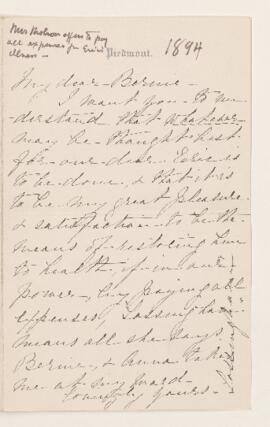 Mrs Thomson offers to pay
all expenses for Erin's
illness -
Piedmont.
1894
My dear Bernie -
I want you to un-
derstand that whatever
may be thought best
for our dear Erin is
to be done, & that it is
to be my great pleasure
& satisfaction to be the
means of restoring him
to health, if in our
power, by paying all
expenses,
means all she says.
Bernie, & Anna take
me at my word -
yours -